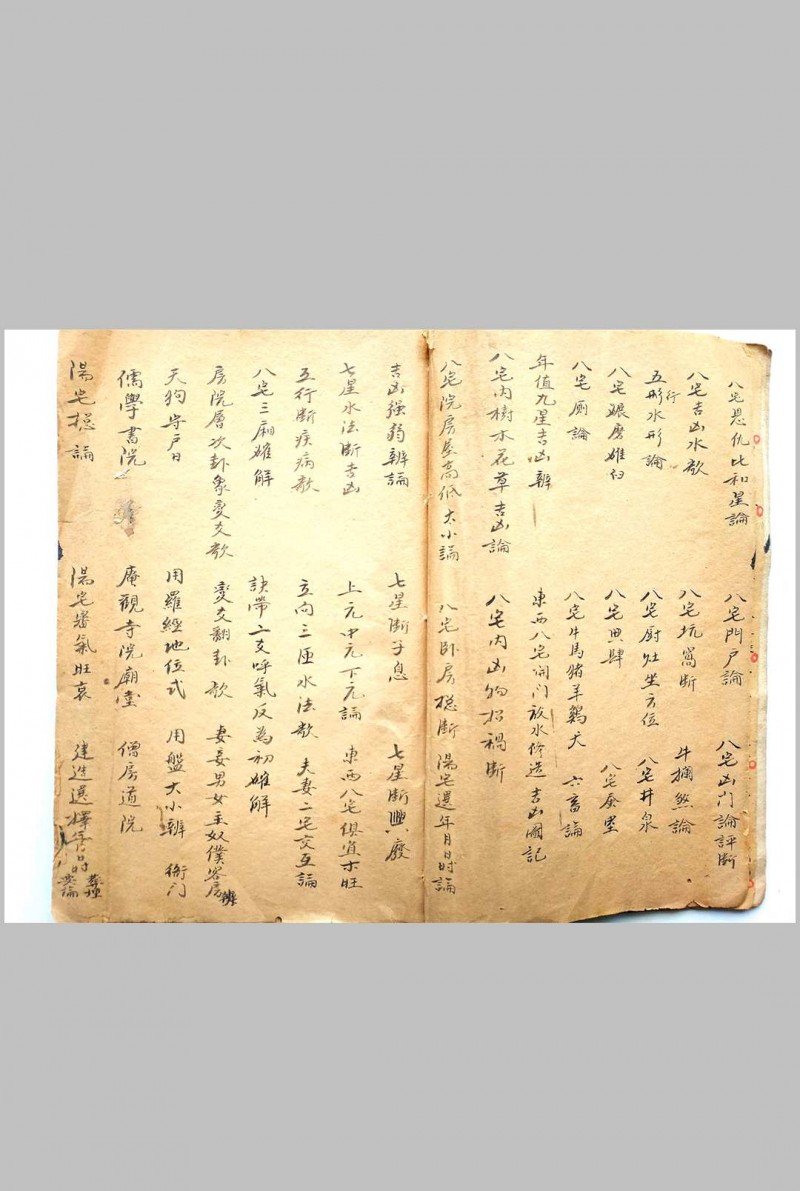 八宅恩仇比和星論 八宅門戶論 八宅凶门論評断
八宅吉凶水歌 八宅坑窩断 牛㭡煞論
五形行水形論 八宅厨灶坐方位 八宅井泉
八宅碾磨碓臼 八宅典肆 八宅蚕室
八宅厕論 八宅牛馬猪羊鷄犬 六畜論
年值九星吉凶辨 東西八宅開门放水修造吉凶圖記
八宅内樹木花草吉凶論 八宅内凶物招禍断
八宅院房屋高低大小論 八宅卧房揔断 陽宅選年月日时論
吉凶强弱辨論 七星断子息 七星断興廢
七星水法断吉凶 上元中元下元論 東西八宅俱宜木旺
五行断疾病歌 立向三匝水法歌 夫妻二宅交互論
八宅三厢难解 訣帶二支呼氣反為初难解
房院層次卦象变爻歌 变爻翻卦歌 妻妾男女主奴僕客房辨
天狗守戶日 用羅經地位式 用盤大小辨 衙门
儒學書院 庵觀寺院廟堂 僧房道院
陽宅揔論 陽宅墙氣旺衰 建造選擇年日时